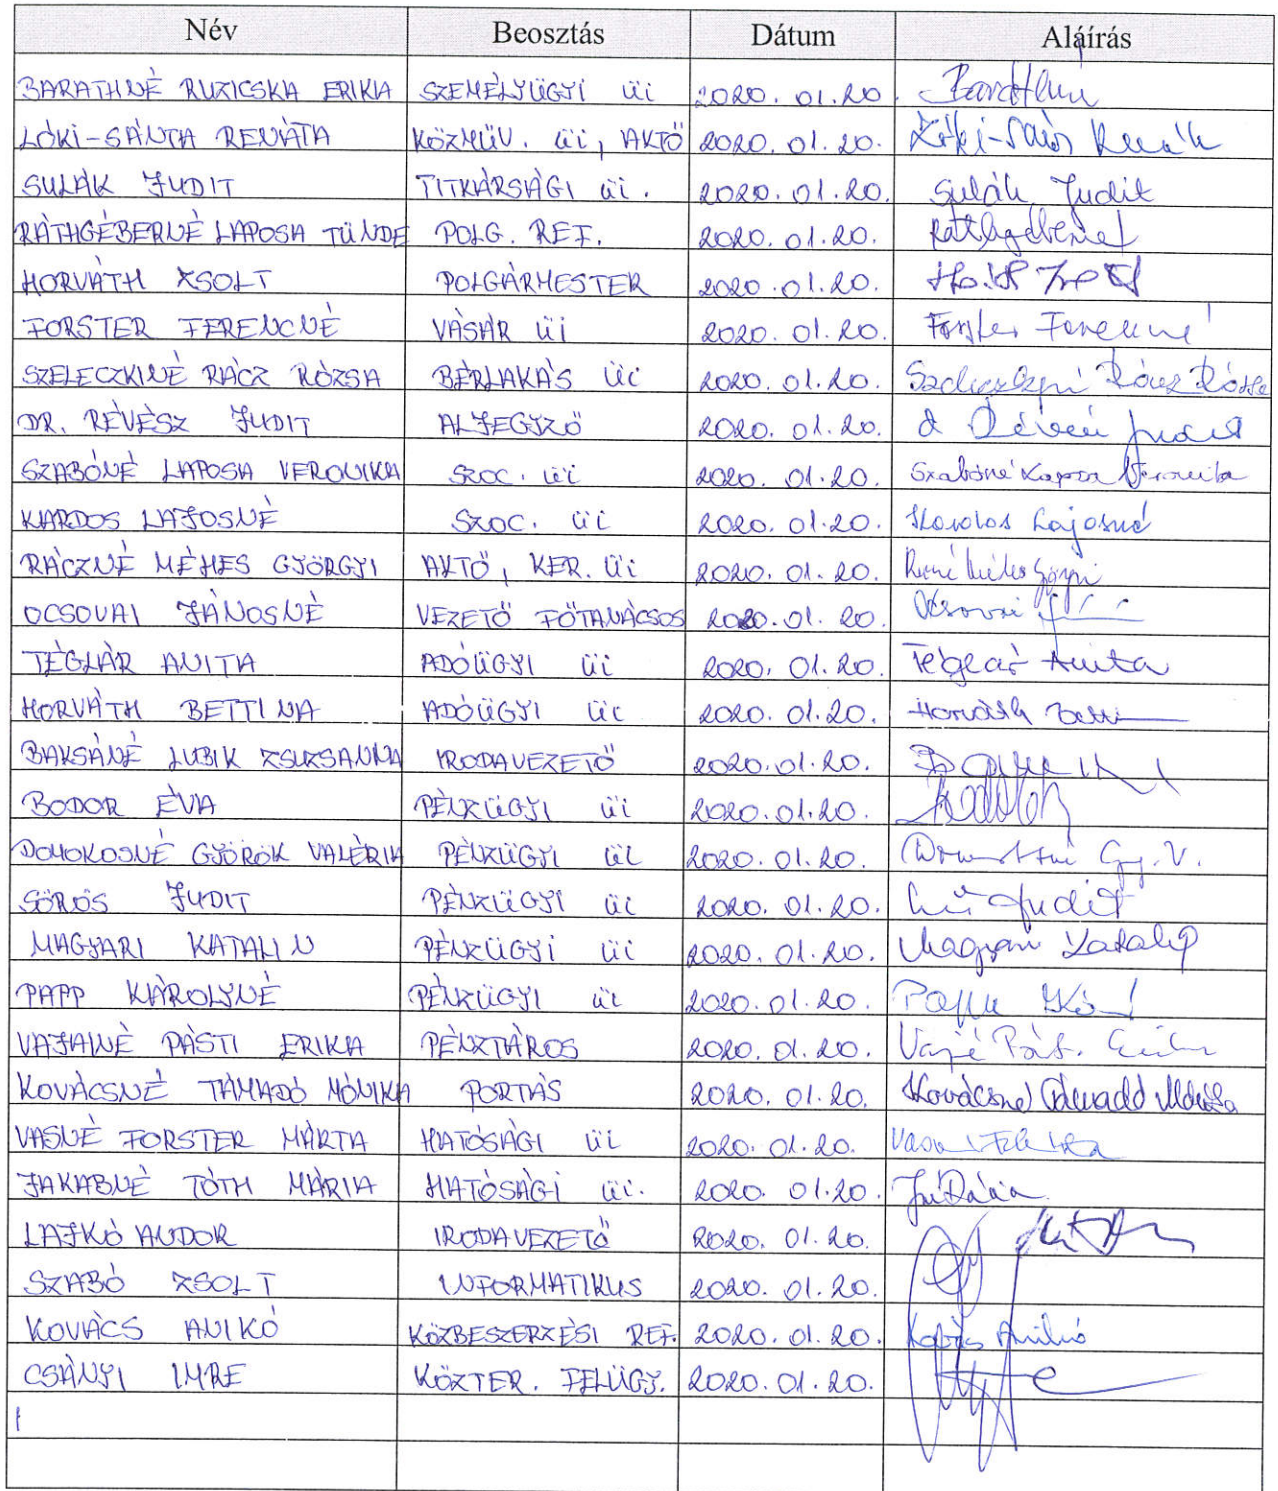 Név Beosztás Dátum Aláírás
BARATHNÉ RUZICSKA ERIKA SZEMÉLYÜGYI üi 2020. 01.20
LÓKI-SÁNTA RENÁTA KÖZMŰV. üi, AKTŐ 2020. 01. 20.
SULÁK JUDIT TITKÁRSÁGI üi. 2020. 01.20. Sulák Judit
RÁTHGÉBERNÉ LAPOSA TÜNDE POLG. REF. 2020. 01.20.
HORVÁTH ZSOLT POLGÁRMESTER 2020. 01.20.
FORSTER FERENCNÉ VÁSÁR üi 2020. 01.20. Forster Ferencné
SZELECZKINÉ RÁCZ RÓZSA BÉRLAKÁS üi 2020. 01.20.
DR. RÉVÉSZ JUDIT ALJEGYZŐ 2020. 01.20.
SZABÓNÉ LAPOSA VERONIKA SZOC. üi 2020. 01.20. Szabóné Laposa Veronika
KARDOS LAJOSNÉ SZOC. üi 2020. 01.20. Kardos Lajosné
RÁCZNÉ MÉHES GYÖRGYI AKTŐ, KER. üi 2020. 01.20.
OCSOVAI JÁNOSNÉ VEZETŐ FŐTANÁCSOS 2020. 01. 20. Ocsovai
TÉGLÁR ANITA ADÓÜGYI üi 2020. 01.20. Téglár Anita
HORVÁTH BETTINA ADÓÜGYI üi 2020. 01.20. Horváth
BAKSÁNÉ LUBIK ZSUZSANNA IRODAVEZETŐ 2020.01.20.
BODOR ÉVA PÉNZÜGYI üi 2020.01.20.
DOMOKOSNÉ GYÖRÖK VALÉRIA PÉNZÜGYI üi 2020.01.20. Gy. V.
SÖRÖS JUDIT PÉNZÜGYI üi 2020. 01.20. Judit
MAGYARI KATALIN PÉNZÜGYI üi 2020.01.20. Magyari Katalin
PAPP KÁROLYNÉ PÉNZÜGYI üi 2020.01.20.
VAJANÉ PÁSTI ERIKA PÉNZTÁROS 2020.01.20.
KOVÁCSNÉ TAMADÓ MÓNIKA PORTÁS 2020. 01.20. Kovácsné Tamadó Mónika
VASNÉ FORSTER MÁRTA HATÓSÁGI üi 2020. 01.20.
JAKABNÉ TÓTH MÁRIA HATÓSÁGI üi. 2020. 01.20.
LAJKÓ ANDOR IRODAVEZETŐ 2020. 01.20.
SZABÓ ZSOLT INFORMATIKUS 2020. 01.20.
KOVÁCS ANIKÓ KÖZBESZERZÉSI REF. 2020. 01.20. Kovács Anikó
CSÁNYI IMRE KÖZTER. FELÜGY. 2020.01.20.